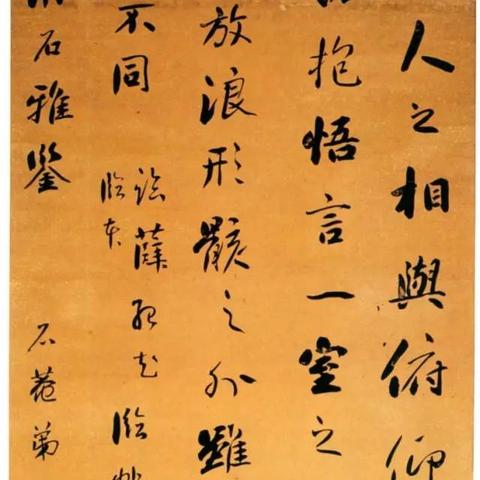 人之相與俯仰
抱悟言一室之
放浪形骸之外雖
不同
薛
臨
臨本
石雅鑒
石菴弟